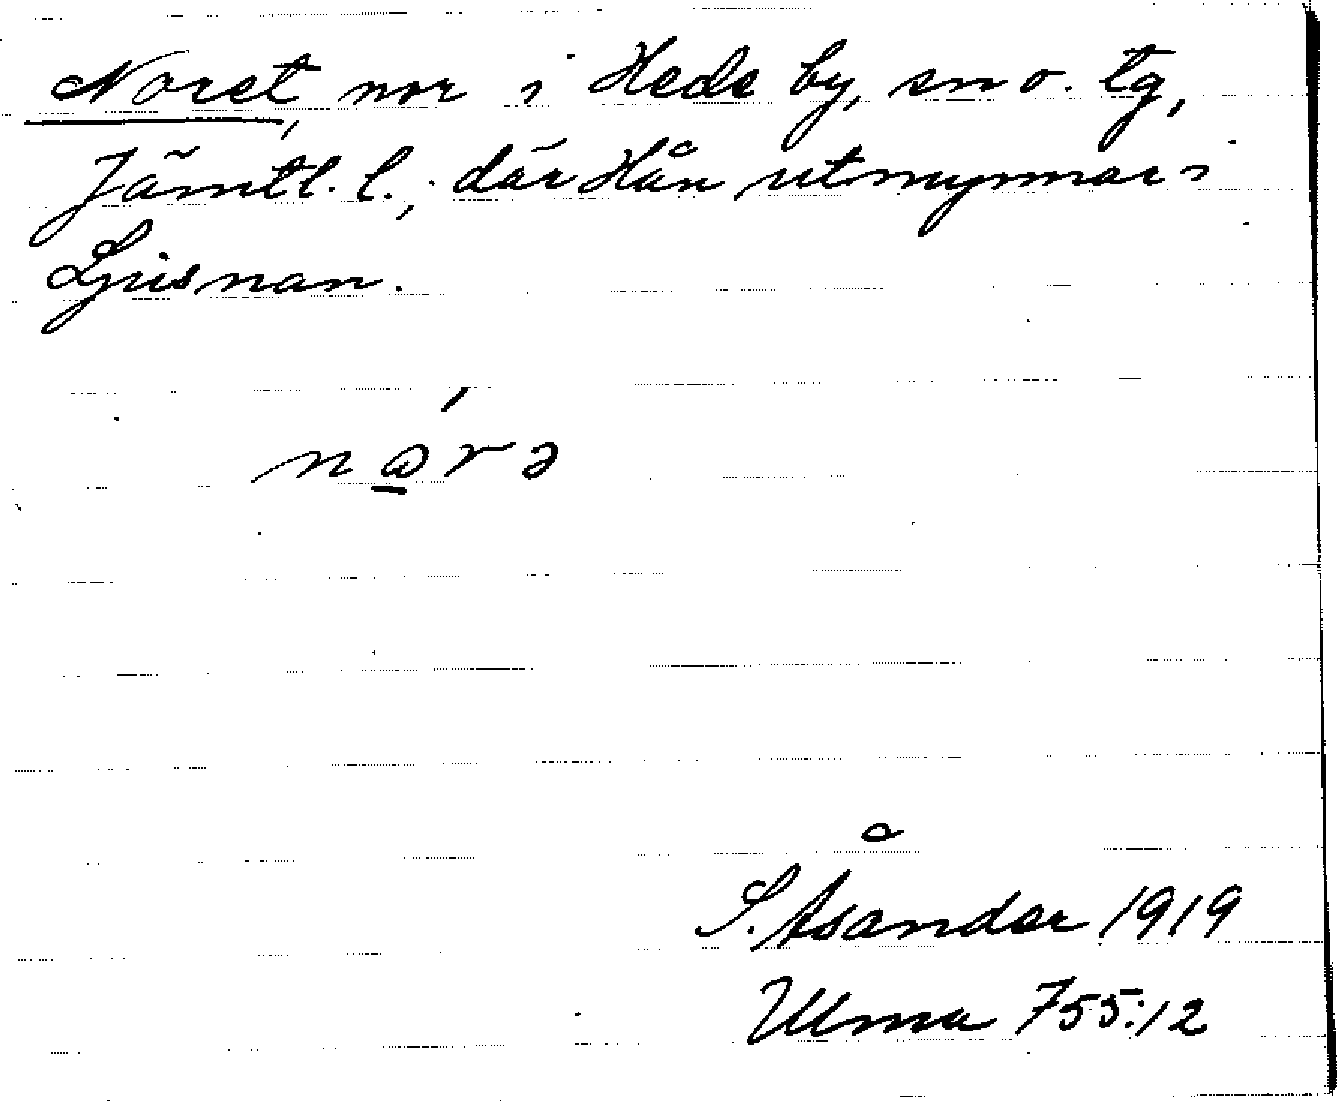 Noret, nor i Hede by, sn o. tg,
Jämtl. l., där Hån utmynnar i
Ljusnan.
nǿrə
S. Åsander 1919
Ulma 755:12